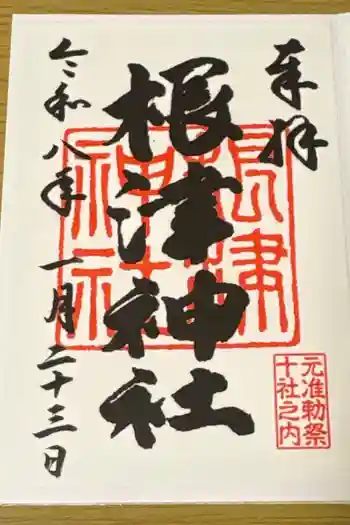 奉拝
根津神社
根津
神社
元准勅祭
十社之内
令和八年一月二十三日